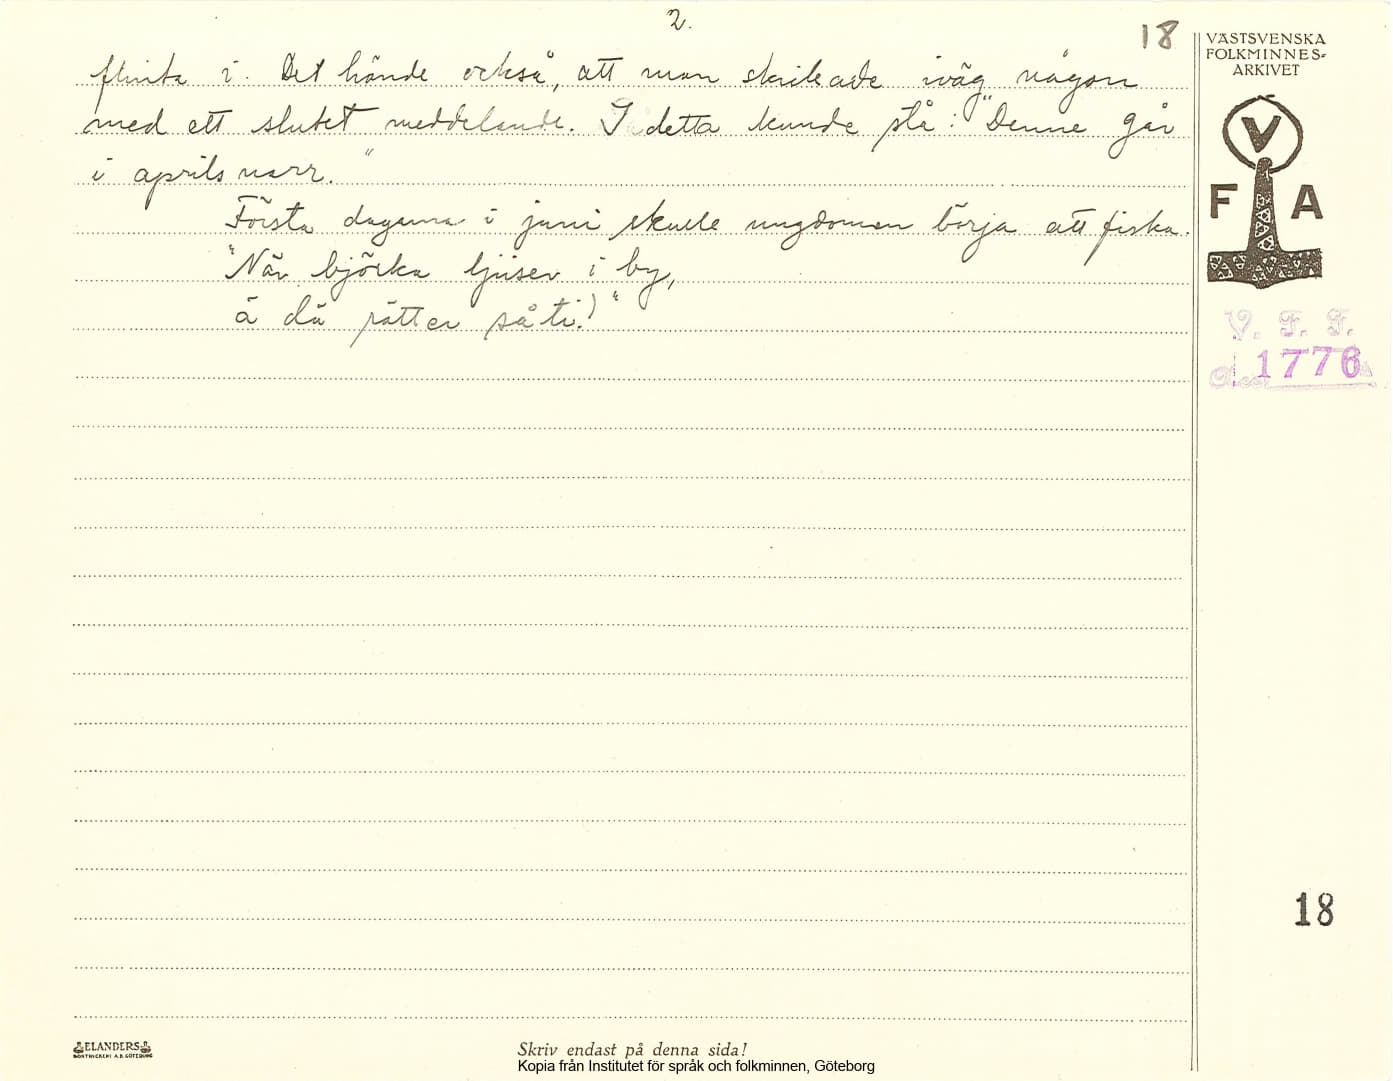 2.
18
VÄSTSVENSKA
FOLKMINNES-
ARKIVET
flinta i. Det hände också, att man skickade iväg någon
med ett slutet meddelande. I detta kunde stå: "Denne går
i aprils narr."
Första dagarna i juni skulle ungdomen börja att fiska.
"När björka ljuser i by,
ä dä rätter så ti!"
V
F A
V. F. F.
1776
18
ELANDERS
BOKTRYCKERI A.B. GÖTEBORG
Skriv endast på denna sida!
Kopia från Institutet för språk och folkminnen, Göteborg